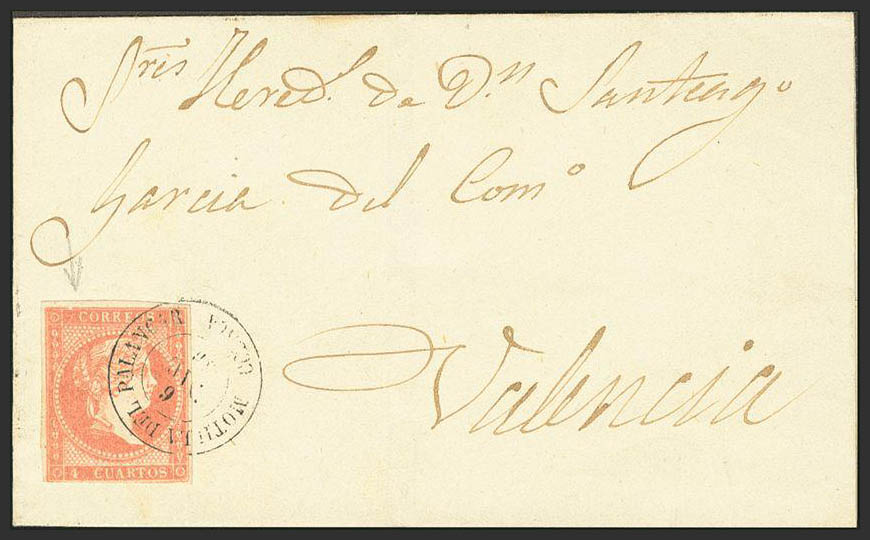 Sres Hered.s de Dn Santiago
Garcia del Como
Valencia
CORREOS
4 CUARTOS
MOTILLA DEL PALANCAR CUENCA